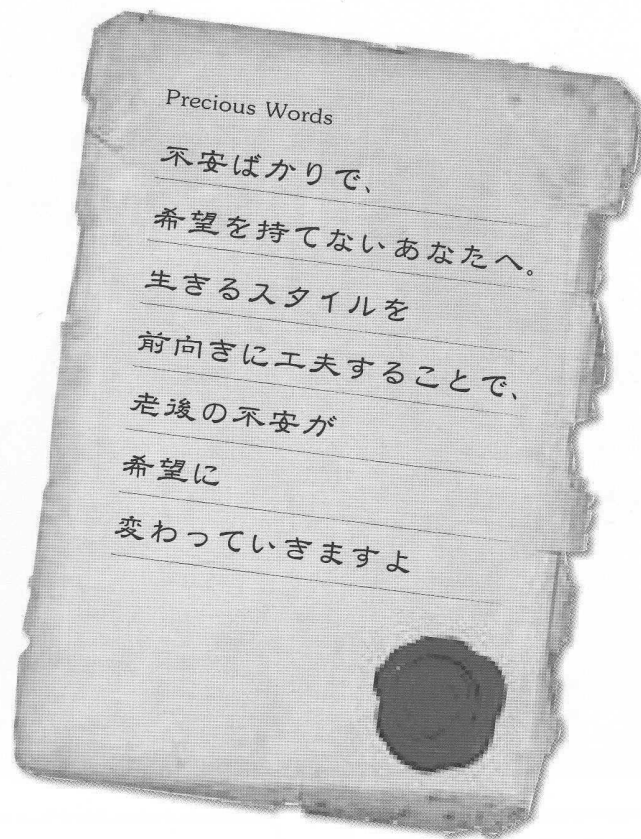 Precious Words
不安ばかりで、
希望を持てないあなたへ。
生きるスタイルを
前向きに工夫することで、
老後の不安が
希望に
変わっていきますよ